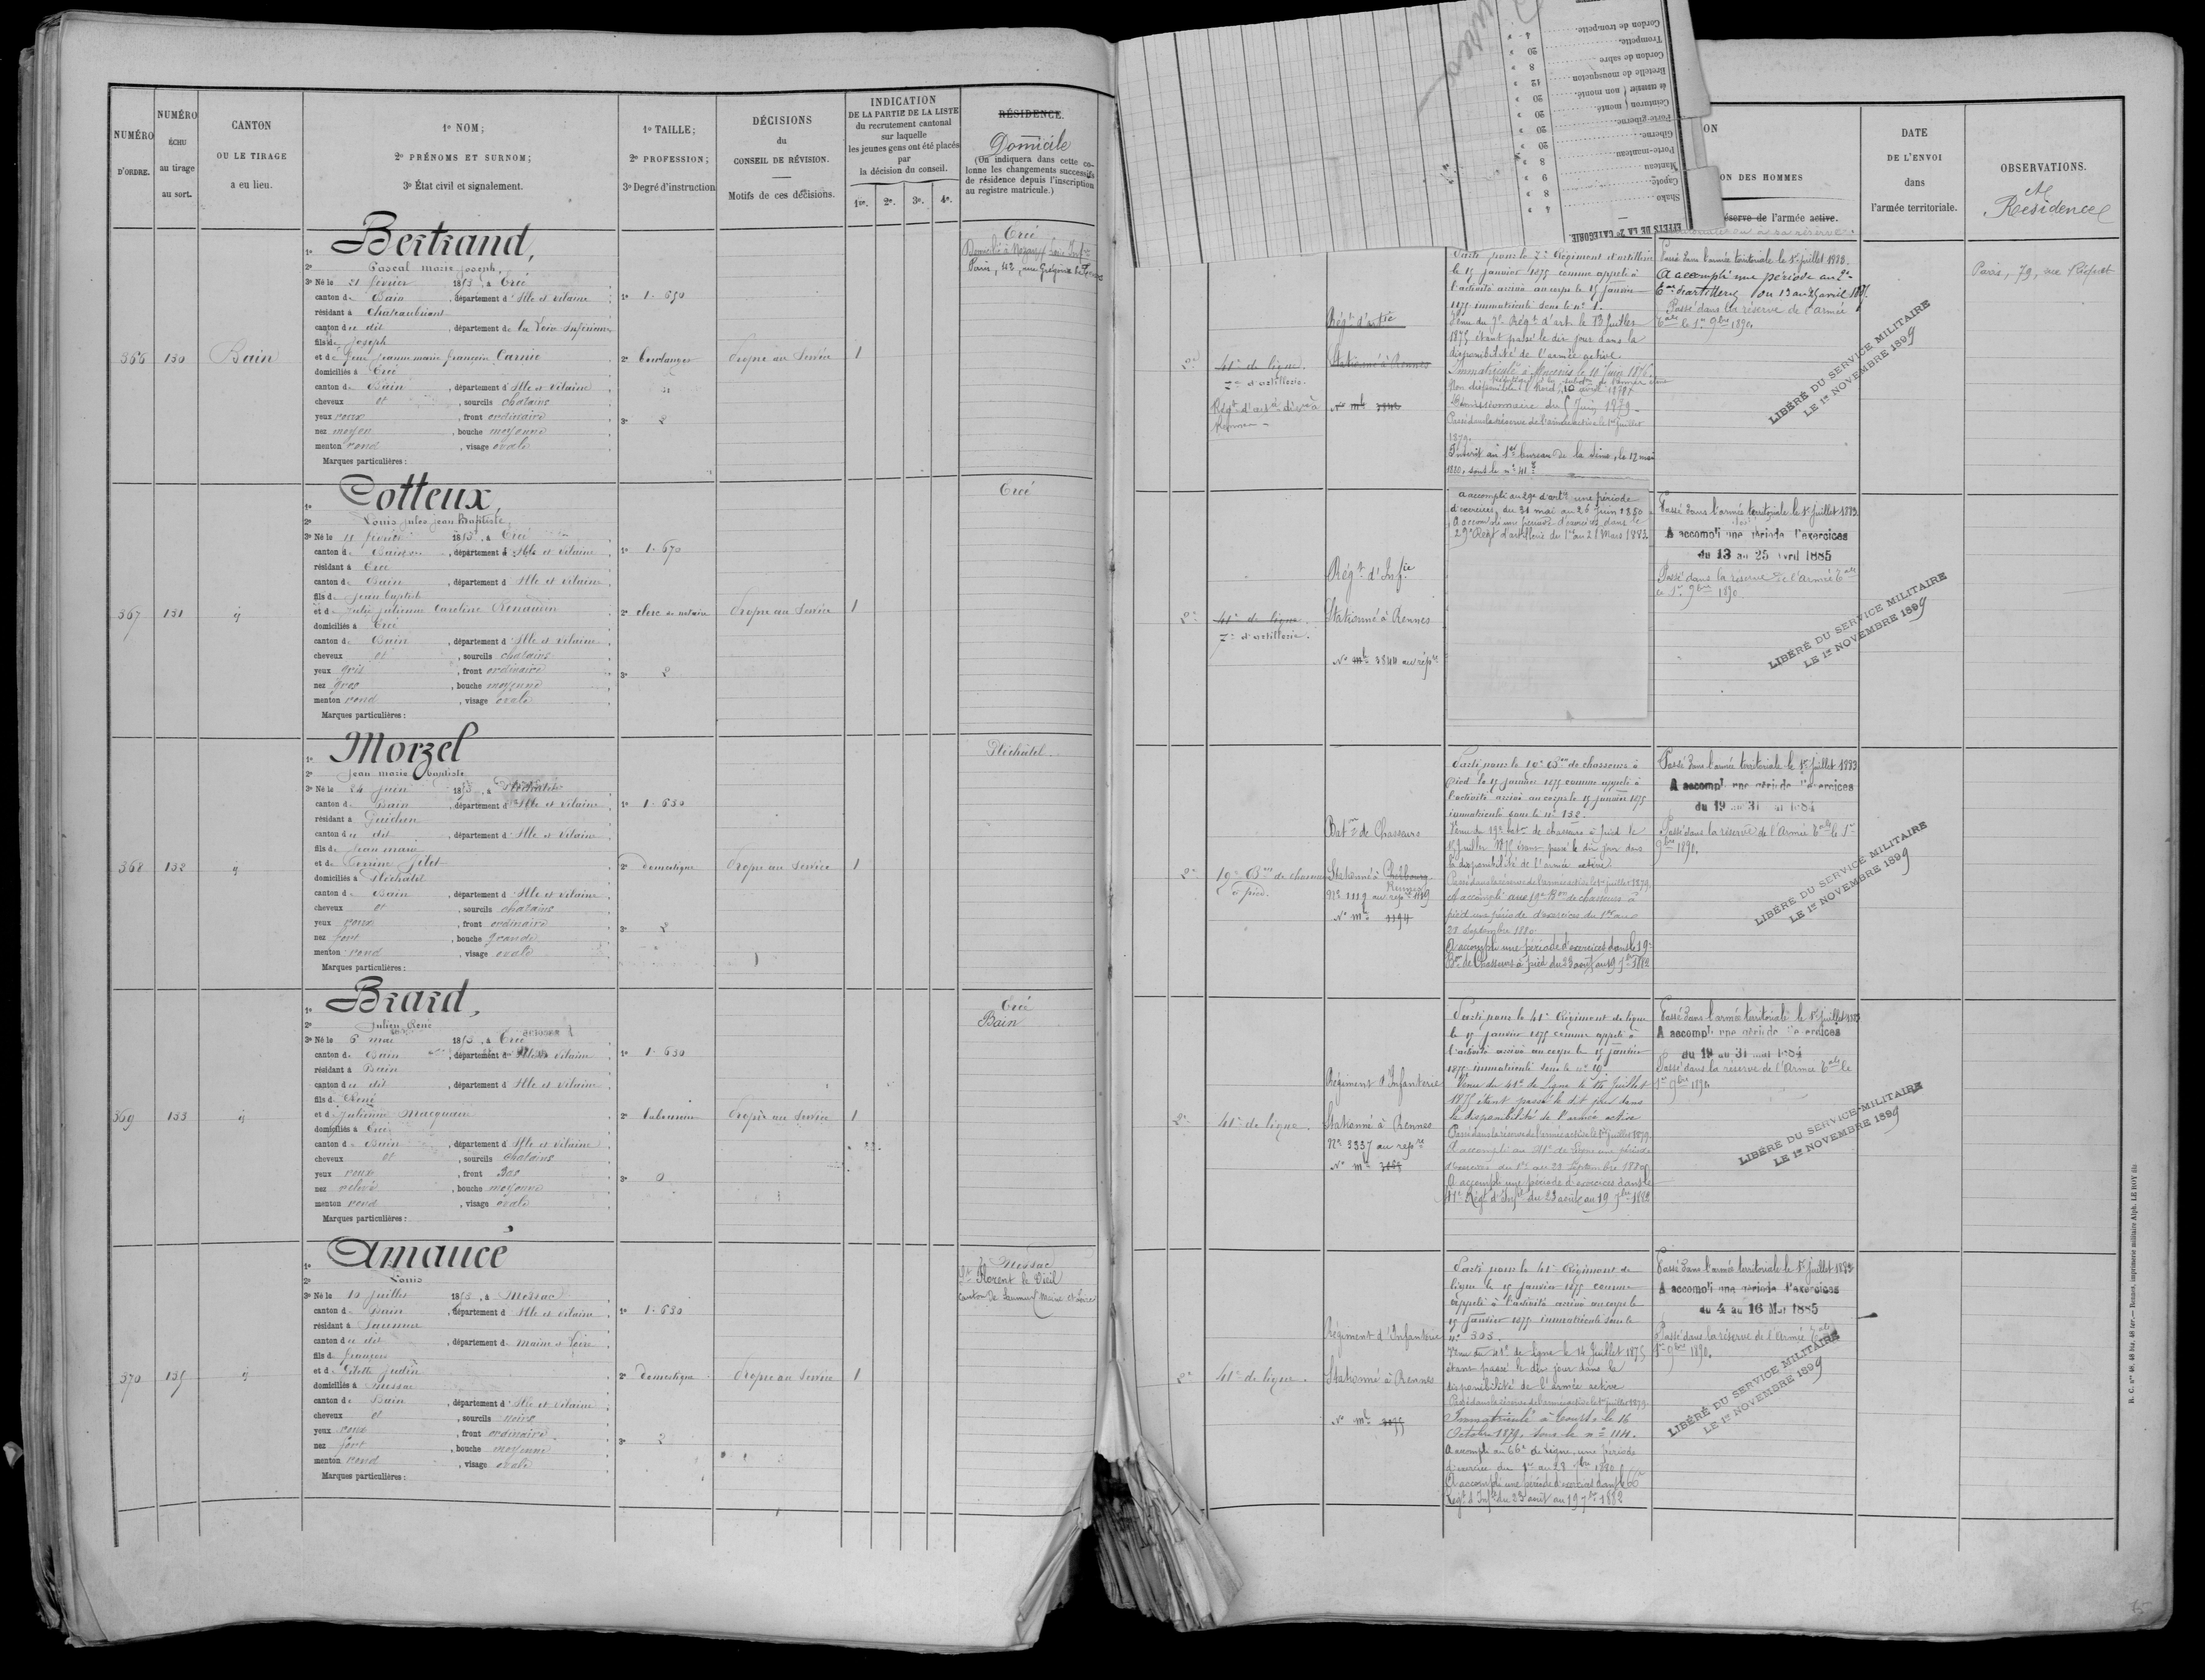 NUMÉRO
D'ORDRE.
NUMÉRO
ÉCHU
au tirage
au sort.
CANTON
OU LE TIRAGE
a eu lieu.
1º NOM;
2º PRÉNOMS ET SURNOM;
3º État civil et signalement.
1º TAILLE;
2º PROFESSION;
3º Degré d'instruction
DÉCISIONS
du
CONSEIL DE RÉVISION.
Motifs de ces décisions.
INDICATION
DE LA PARTIE DE LA LISTE
du recrutement cantonal
sur laquelle
les jeunes gens ont été placés
par
la décision du conseil.
1re. 2e. 3e. 4e.
RÉSIDENCE.
Domicile
(On indiquera dans cette co-
lonne les changements successifs
de résidence depuis l'inscription
au registre matricule.)
366
130
Bain
1º Bertrand,
2º Pascal marie joseph,
3º Né le 21 février 1853, à Ercé
canton de Bain, département d'Ille et Vilaine
résidant à Chateaubriant
canton du dit, département de la Loire Inférieure
fils de Joseph
et de Jeanne marie françoise Carnié
domiciliés à Ercé
canton de Bain, département d'Ille et vilaine
cheveux et, sourcils chatains
yeux roux, front ordinaire
nez moyen, bouche moyenne
menton rond, visage ovale
Marques particulières:
1º 1.650
2º boulanger
3º 2
Propre au Service
1
Ercé
Domicilié à Nozay Loire Infre
367
131
id
1º Cotteux,
2º Louis jules jean Baptiste,
3º Né le 11 février 1853, à Ercé
canton de Bain, département d'Ille et vilaine
résidant à Ercé
canton de Bain, département d'Ille et vilaine
fils de jean baptiste
et de julie julienne Caroline Renaudin
domiciliés à Ercé
canton de Bain, département d'Ille et vilaine
cheveux et, sourcils chatains
yeux gris, front ordinaire
nez gros, bouche moyenne
menton rond, visage ovale
Marques particulières:
1º 1.670
2º clerc de notaire
3º 2
Propre au Service
1
Ercé
368
132
id
1º Morzel
2º jean marie baptiste
3º Né le 24 juin 1853, à Pléchatel
canton de Bain, département d'Ille et vilaine
résidant à Guichen
canton du dit, département d'Ille et vilaine
fils de jean marie
et de Perrine
domiciliés à Pléchatel
canton de Bain, département d'Ille et vilaine
cheveux et, sourcils chatains
yeux roux, front ordinaire
nez fort, bouche grande
menton rond, visage ovale
Marques particulières:
1º 1.630
2º domestique
3º 2
Propre au Service
1
Pléchatel.
369
133
id
1º Briard,
2º Julien René
3º Né le 6 mai 1853, à Ercé
canton de Bain, département d'Ille et vilaine
résidant à Bain
canton du dit, département d'Ille et vilaine
fils de René
et de Julienne Macquain
domiciliés à Ercé
canton de Bain, département d'Ille et vilaine
cheveux et, sourcils chatains
yeux roux, front bas
nez relevé, bouche moyenne
menton rond, visage ovale
Marques particulières:
1º 1.630
2º laboureur
3º 0
Propre au Service
1
Ercé
Bain
370
135
id
1º Amaucé
2º Louis
3º Né le 10 juillet 1853, à Messac
canton de Bain, département d'Ille et vilaine
résidant à Saumur
canton du dit, département de Maine et Loire
fils de françois
et de
domiciliés à Messac
canton de Bain, département d'Ille et vilaine
cheveux et, sourcils noirs
yeux roux, front ordinaire
nez fort, bouche moyenne
menton rond, visage ovale
Marques particulières:
1º 1.680
2º domestique
3º 2
Propre au Service
1
Messac
St Florent le Vieil
canton de Saumur (Maine et Loire
Cordon de trompette. 4 »
Trompette. 20 »
Cordon de sabre 8 »
Bretelle de mousqueton 12 »
non monté. 20 »
Ceinturon monté. 20 »
Porte-giberne 20 »
Giberne. 20 »
Porte-manteau 8 »
Manteau 9 »
Capote. 8 »
Shako 4 »
EFFETS DE LA 2e CATÉGORIE.
ON
ON DES HOMMES
réserve de l'armée active.
DATE
DE L'ENVOI
dans
l'armée territoriale.
OBSERVATIONS.
et
Résidence
2e
41e de ligne.
7e d'artillerie.
Régt d'artie
Stationné à Rennes
No mle
Parti pour le 7e Régiment d'artillerie
le 15 janvier 1875 comme appelé à
l'activité arrivé au corps le 15 janvier
1875 immatriculé sous le no 1.
Venu du 7e Régt d'art. le 13 Juillet
1875 étant passé le dit jour dans la
disponibilité de l'armée active.
Passé dans la réserve de l'armée active le 1er juillet
1879.
Inscrit au 1er bureau de la Seine, le 12 mai
1880, sous le no 41
Passé dans l'armée territoriale le 1er juillet 1883.
A accompli une période au 2e
du 13 au 25 avril 1885.
Passé dans la réserve de l'armée
tale le 1er 9bre 1890.
LIBÉRÉ DU SERVICE MILITAIRE
LE 1er NOVEMBRE 1899
Paris, 79, rue Riquet
2e
41e de ligne.
7e d'artillerie.
Régt d'Infie
Stationné à Rennes
No mle 3844 au répre
a accompli au 2e d'artie une période
d'exercices, du 31 mai au 26 juin 1880
A accompli une période d'exercices dans le
29e Régt d'artillerie du 1er au 21 Mars 1883.
Passé dans l'armée territoriale le 1er juillet 1883.
A accompli une période d'exercices
du 13 au 25 avril 1885
Passé dans la réserve de l'armée tale
le 1er 9bre 1890
LIBÉRÉ DU SERVICE MILITAIRE
LE 1er NOVEMBRE 1899
2e
19e Bon de chasseurs
à pied.
Baton de Chasseurs
Stationné à Cherbourg.
Rennes
No 1119 au répre
No mle 1194
Parti pour le 19e Bon de chasseurs à
pied le 15 janvier 1875 comme appelé à
l'activité arrivé au corps le 15 janvier 1875
immatriculé sous le no 132.
Venu du 19e baton de chasseurs à pied le
Juillet 1875 étant passé le dit jour dans
la disponibilité de l'armée active.
Passé dans la réserve de l'armée active le 1er juillet 1879.
A accompli au 19e Bon de chasseurs à
pied une période d'exercices du 1er au
28 Septembre 1880.
A accompli une période d'exercices dans le 19e
Bon de Chasseurs à pied du 23 août au 19 7bre 1882
Passé dans l'armée territoriale le 1er juillet 1883
A accompli une période d'exercices
du 19 au 31 mai 1884
Passé dans la réserve de l'Armée tale le 1er
9bre 1890.
LIBÉRÉ DU SERVICE MILITAIRE
LE 1er NOVEMBRE 1899
2e
41e de ligne.
Régiment d'Infanterie
Stationné à Rennes
No 3337 au répre
No mle
Parti pour le 41e Régiment de ligne
le 15 janvier 1875 comme appelé à
l'activité arrivé au corps le 15 janvier
1875 immatriculé sous le no 19.
Venu du 41e de Ligne le 16 Juillet
1875 étant passé le dit jour dans
la disponibilité de l'armée active
Passé dans la réserve de l'armée active le 1er juillet 1879.
A accompli au 41e de Ligne une période
d'exercices du 1er au 28 Septembre 1880.
A accompli une période d'exercices dans le
41e Régt d'Infie du 23 août au 19 7bre 1882
Passé dans l'armée territoriale le 1er juillet 1883
A accompli une période d'exercices
du 19 au 31 mai 1884
Passé dans la réserve de l'Armée tale le
1er 9bre 1890
LIBÉRÉ DU SERVICE MILITAIRE
LE 1er NOVEMBRE 1899
2e
41e de ligne.
Régiment d'Infanterie
Stationné à Rennes
No mle
Parti pour le 41e Régiment de
ligne le 15 janvier 1875 comme
appelé à l'activité arrivé au corps le
15 janvier 1875 immatriculé sous le
no 303.
Venu du 41e de Ligne le 16 Juillet 1875
étant passé le dit jour dans la
disponibilité de l'armée active
Passé dans la réserve de l'armée active le 1er juillet 1879.
Immatriculé à Tours le 16
Octobre 1879, sous le no 1114.
A accompli au 66e de Ligne une période
d'exercice du 1er au 28 7bre 1880.
A accompli une période d'exercices dans le 66e
Régt d'Infie du 23 août au 19 7bre 1882
Passé dans l'armée territoriale le 1er juillet 1883
A accompli une période d'exercices
du 4 au 16 Mai 1885
Passé dans la réserve de l'Armée tale
1er 9bre 1890.
LIBÉRÉ DU SERVICE MILITAIRE
LE 1er NOVEMBRE 1899
R. C. nos 46, 48 bis, 48 ter. — Rennes, imprimerie militaire Alph. LE ROY fils